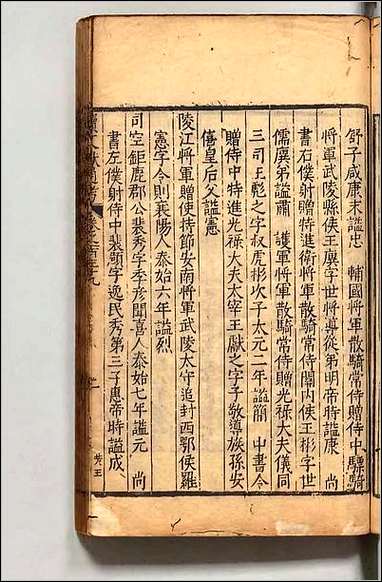 舒子咸康末謚忠　輔國將軍散騎常侍贈侍中驃騎
將軍武陵縣侯王廙字世將導從弟明帝時謚康　尚
書右僕射贈特進衛將軍散騎常侍關內侯王彬字世
儒廙弟謚肅　護軍將軍散騎常侍贈光祿大夫儀同
三司王彪之字叔虎彬次子太元二年謚簡　中書令
贈侍中特進光祿大夫太宰王獻之字子敬導族孫安
僖皇后父謚憲
陵江將軍贈使持節安南將軍武陵太守追封西鄂侯羅
憲字令則襄陽人泰始六年謚烈
司空鉅鹿郡公裴秀字季彥聞喜人泰始七年謚元　尚
書左僕射侍中裴頠字逸民秀第三子惠帝時謚成